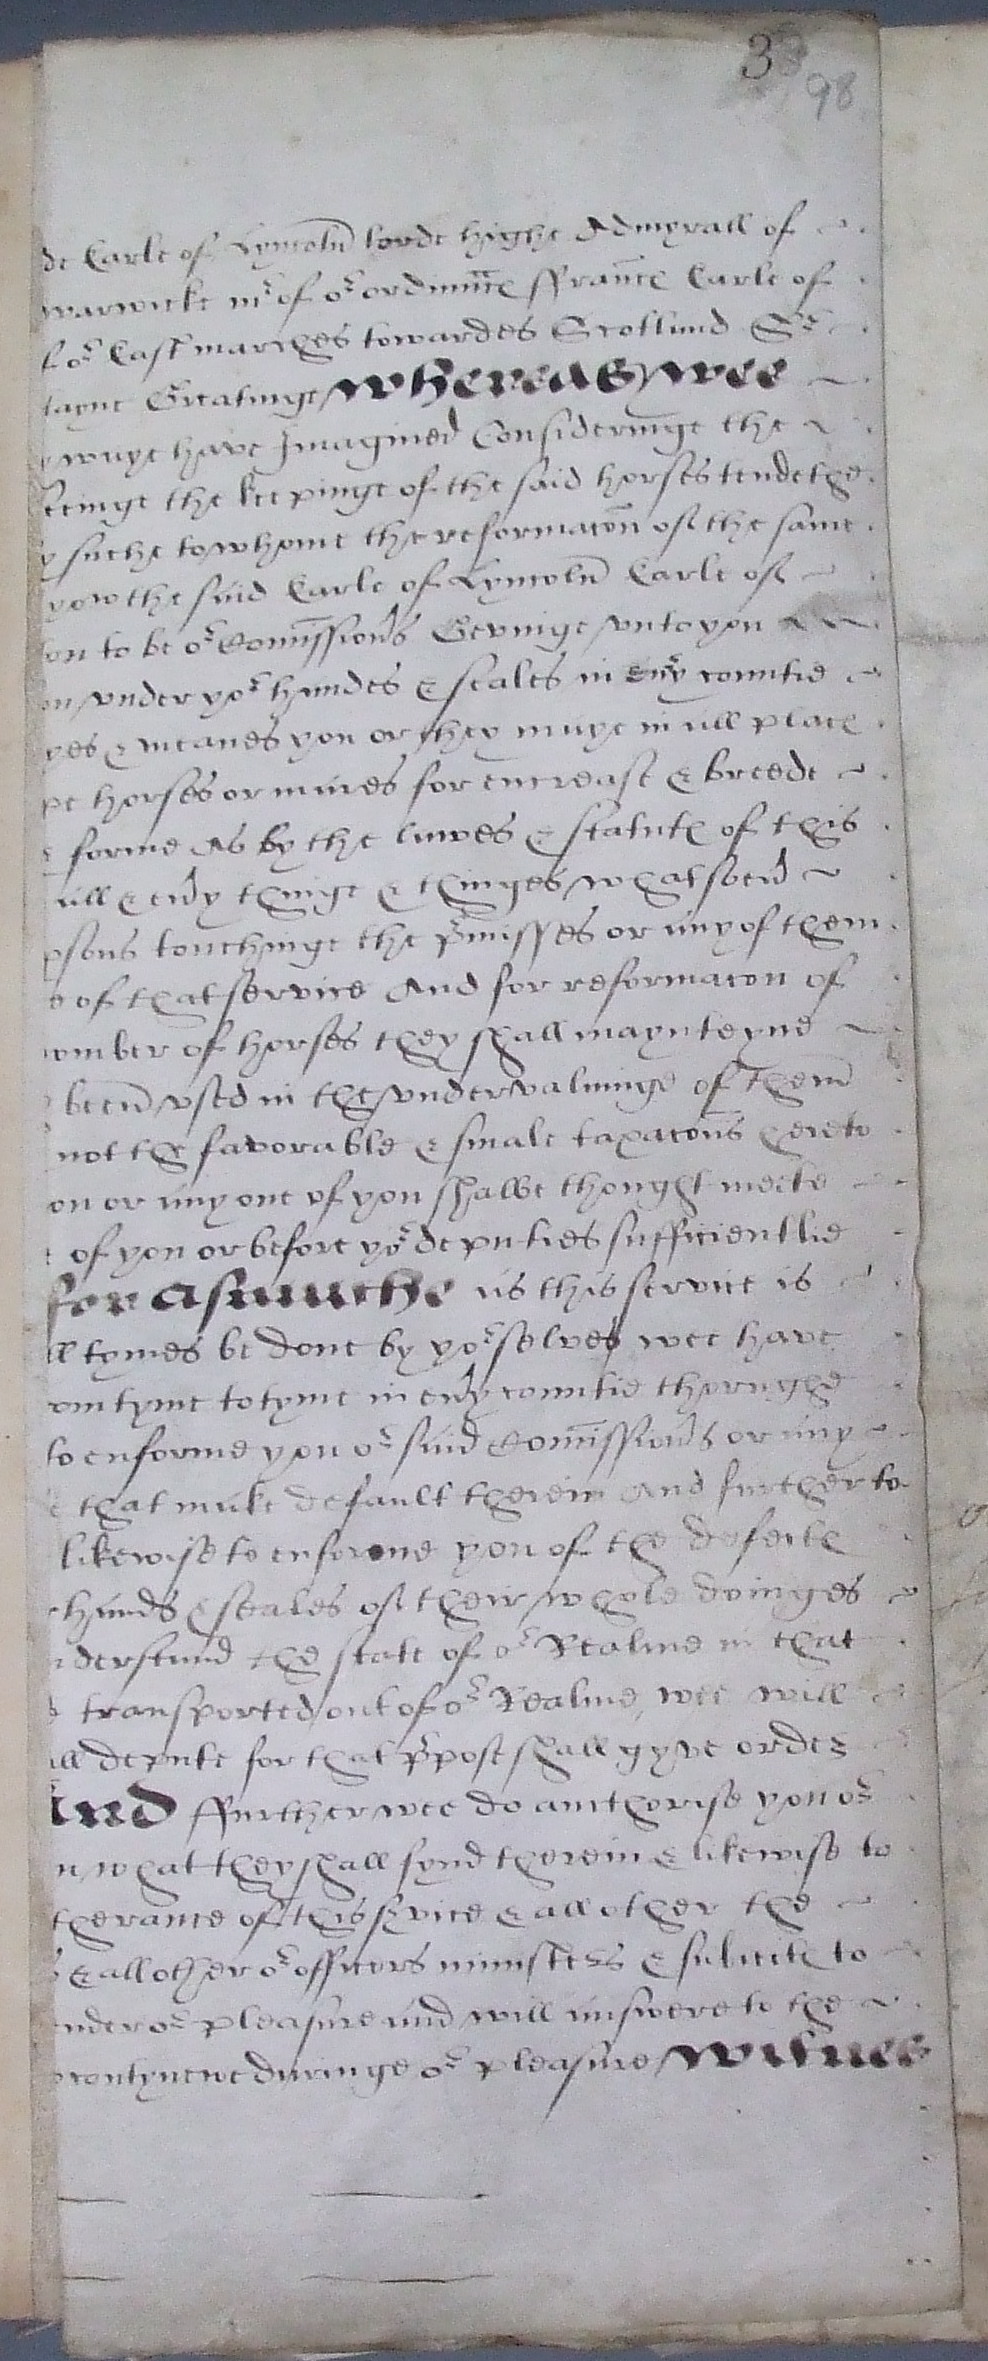 3
98
de Earle of Lyncoln lorde highe Admyrall of
warwicke mr of or ordinnce ffrance Earle of
f or East marches towardes Scotland Sr
tayne Greatinge whereas wee
waye have Imagined Consideringe the
seinge the keepinge of the said horses tendethe
y suche to whome the reformacon of the same
yow the said Earle of Lyncoln Earle of
on to be or Comissions Gevinge unto you
on under yor handes & seales in eny countie
yes & meanes you or they maye in all place
pe horses or mares for encrease & breede
forme As by the lawes & statute of this
all & eny thinge & thinges whatsoeu
psons touchinge the pmisses or any of them
e of that service And for reformacon of
omber of horses they shall maynteyne
been used in the undervaluinge of them
not the favorable & smale taxacons hereto
on or any one of you shalbe thought meete
of you or before yor deputies sufficientlie
for asmuche as this service is
ll tymes be done by yor selves wee have
om tyme to tyme in eny countie thorughe
to enforme you or said Comissions or any
that make default therein And further to
likewise to enforme you of the defecte
hands & seales of their whole doinges
derstand the state of or Realme in that
transported out of or Realme wee will
all depute for that ppose shall gyve order
And ffurther wee do aucthorise you or
n what they shall fynd therein & likewise to
therance of this svice & all other the
& all other or officers ministers & subiecte to
nder or pleasure and will answere to the
contynewe duringe or pleasure witnes